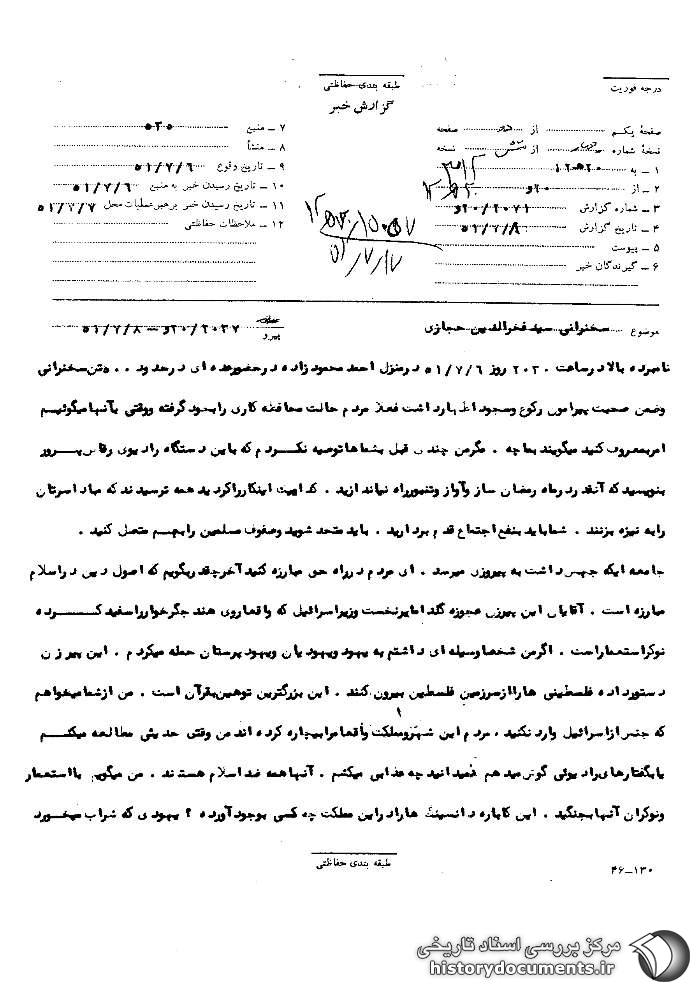 درجه فوریت
طبقه بندی حفاظتی
گزارش خبر
صفحهٔ یکم از صفحه
نسخهٔ شماره از نسخه
۱ – به ۱۲ه۲۰ ۳۱۲
۲ – از ۲۰و
۳ – شماره گزارش ۲۰/۲۰۷۱و
۴ – تاریخ گزارش ۵۱/۷/۸
۵ – پیوست
۶ – گیرندگان خبر
۷ – منبع ۵۳۵
۸ – منشأ
۹ – تاریخ وقوع ۵۱/۷/۶
۱۰ – تاریخ رسیدن خبر به منبع ۵۱/۷/۶
۱۱ – تاریخ رسیدن خبر برهبر عملیات محل ۵۱/۷/۷
۱۲ – ملاحظات حفاظتی
۵۱/۷/۱۷
موضوع سخنرانی سید فخرالدین حجازی
پیرو ۲۰/۲۰۳۷و – ۵۱/۷/۸
نامبرده بالا در ساعت ۲۰۳۰ روز ۵۱/۷/۶ در منزل احمد محمودزاده در حضور عده ای در حدود ۵۰۰ تن سخنرانی
وضمن صحبت پیرامون رکوع وسجود اظهار داشت فعلا مردم حالت محافظه کاری را بخود گرفته ووقتی بآنها میگوئیم
امر بمعروف کنید میگویند بما چه . مگر من چندی قبل بشماها توصیه نکردم که باین دستگاه رادیوی رقاص پرور
بنویسید که آنقدر در ماه رمضان ساز و آواز وتنبور راه نیاندازید . کدامیت اینکار را کردید همه ترسیدند که مبادا سرتان
را به نیزه بزنند . شما باید بنفع اجتماع قدم بردارید . باید متحد شوید وصفوف مسلمین را بهم متصل کنید .
جامعه ایکه جهش داشت به پیروزی میرسد . ای مردم در راه حق مبارزه کنید آخر چقدر بگویم که اصول دین در اسلام
مبارزه است . آقایان این پیرزن عجوزه گلدامایر نخست وزیر اسرائیل که واقعا روی هند جگرخوار را سفید کرده
نوکر استعمار است . اگر من شخصا وسیله ای داشتم به یهود ویهودیان ویهود پرستان حمله میکردم . این پیر زن
دستور داده فلسطینی ها را از سرزمین فلسطین بیرون کنند . این بزرگترین توهین بقرآن است . من از شما میخواهم
که جنس از اسرائیل وارد نکنید ، مردم این شهر ومملکت واقعا مرا بیچاره کرده اند من وقتی حدیثی مطالعه میکنم
یا بگفتارهای رادیوئی گوش میدهم نمیدانید چه عذابی میکشم . آنها همه ضد اسلام هستند . من میگویم با استعمار
ونوکران آنها بجنگید . این کاباره دانسینگ ها را در این مملکت چه کسی بوجود آورده ؟ یهودی که شراب میخورد
طبقه بندی حفاظتی
۴۶–۱۳۰
مرکز بررسی اسناد تاریخی
historydocuments.ir